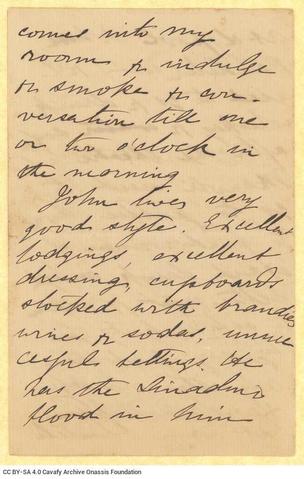 comes into my
room & indulge
in smoke & con-
versation till one
or two o'clock in
the morning
John lives very
good style. Excellent
lodgings, excellent
dressing, cupboards
stocked with brandies
wines & sodas, unsuc
cesful bettings. He
has the
blood in him
CC BY-SA 4.0 Cavafy Archive Onassis Foundation